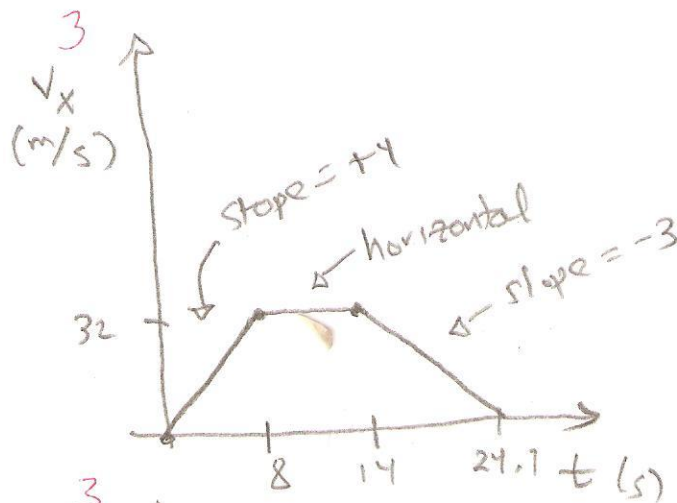 3
Vx
(m/s)
slope = +4
horizontal
slope = -3
32
8 14 24.7 t (s)
3